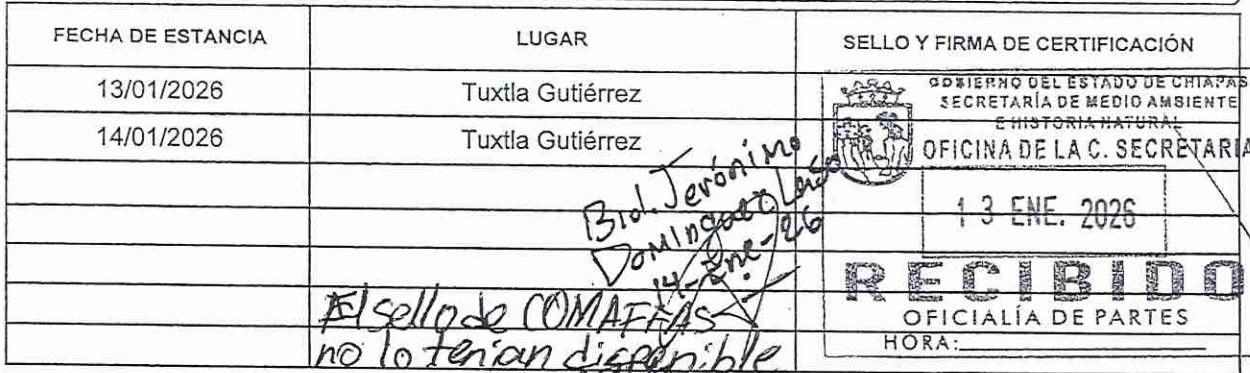 FECHA DE ESTANCIA LUGAR SELLO Y FIRMA DE CERTIFICACIÓN
13/01/2026 Tuxtla Gutiérrez
14/01/2026 Tuxtla Gutiérrez
GOBIERNO DEL ESTADO DE CHIAPAS
SECRETARÍA DE MEDIO AMBIENTE
E HISTORIA NATURAL
OFICINA DE LA C. SECRETARIA
13 ENE. 2026
RECIBIDO
OFICIALÍA DE PARTES
HORA:
Biol. Jerónimo
Domínguez Laso
14-Ene-26
El sello de COMAFFAS
no lo tenian disponible